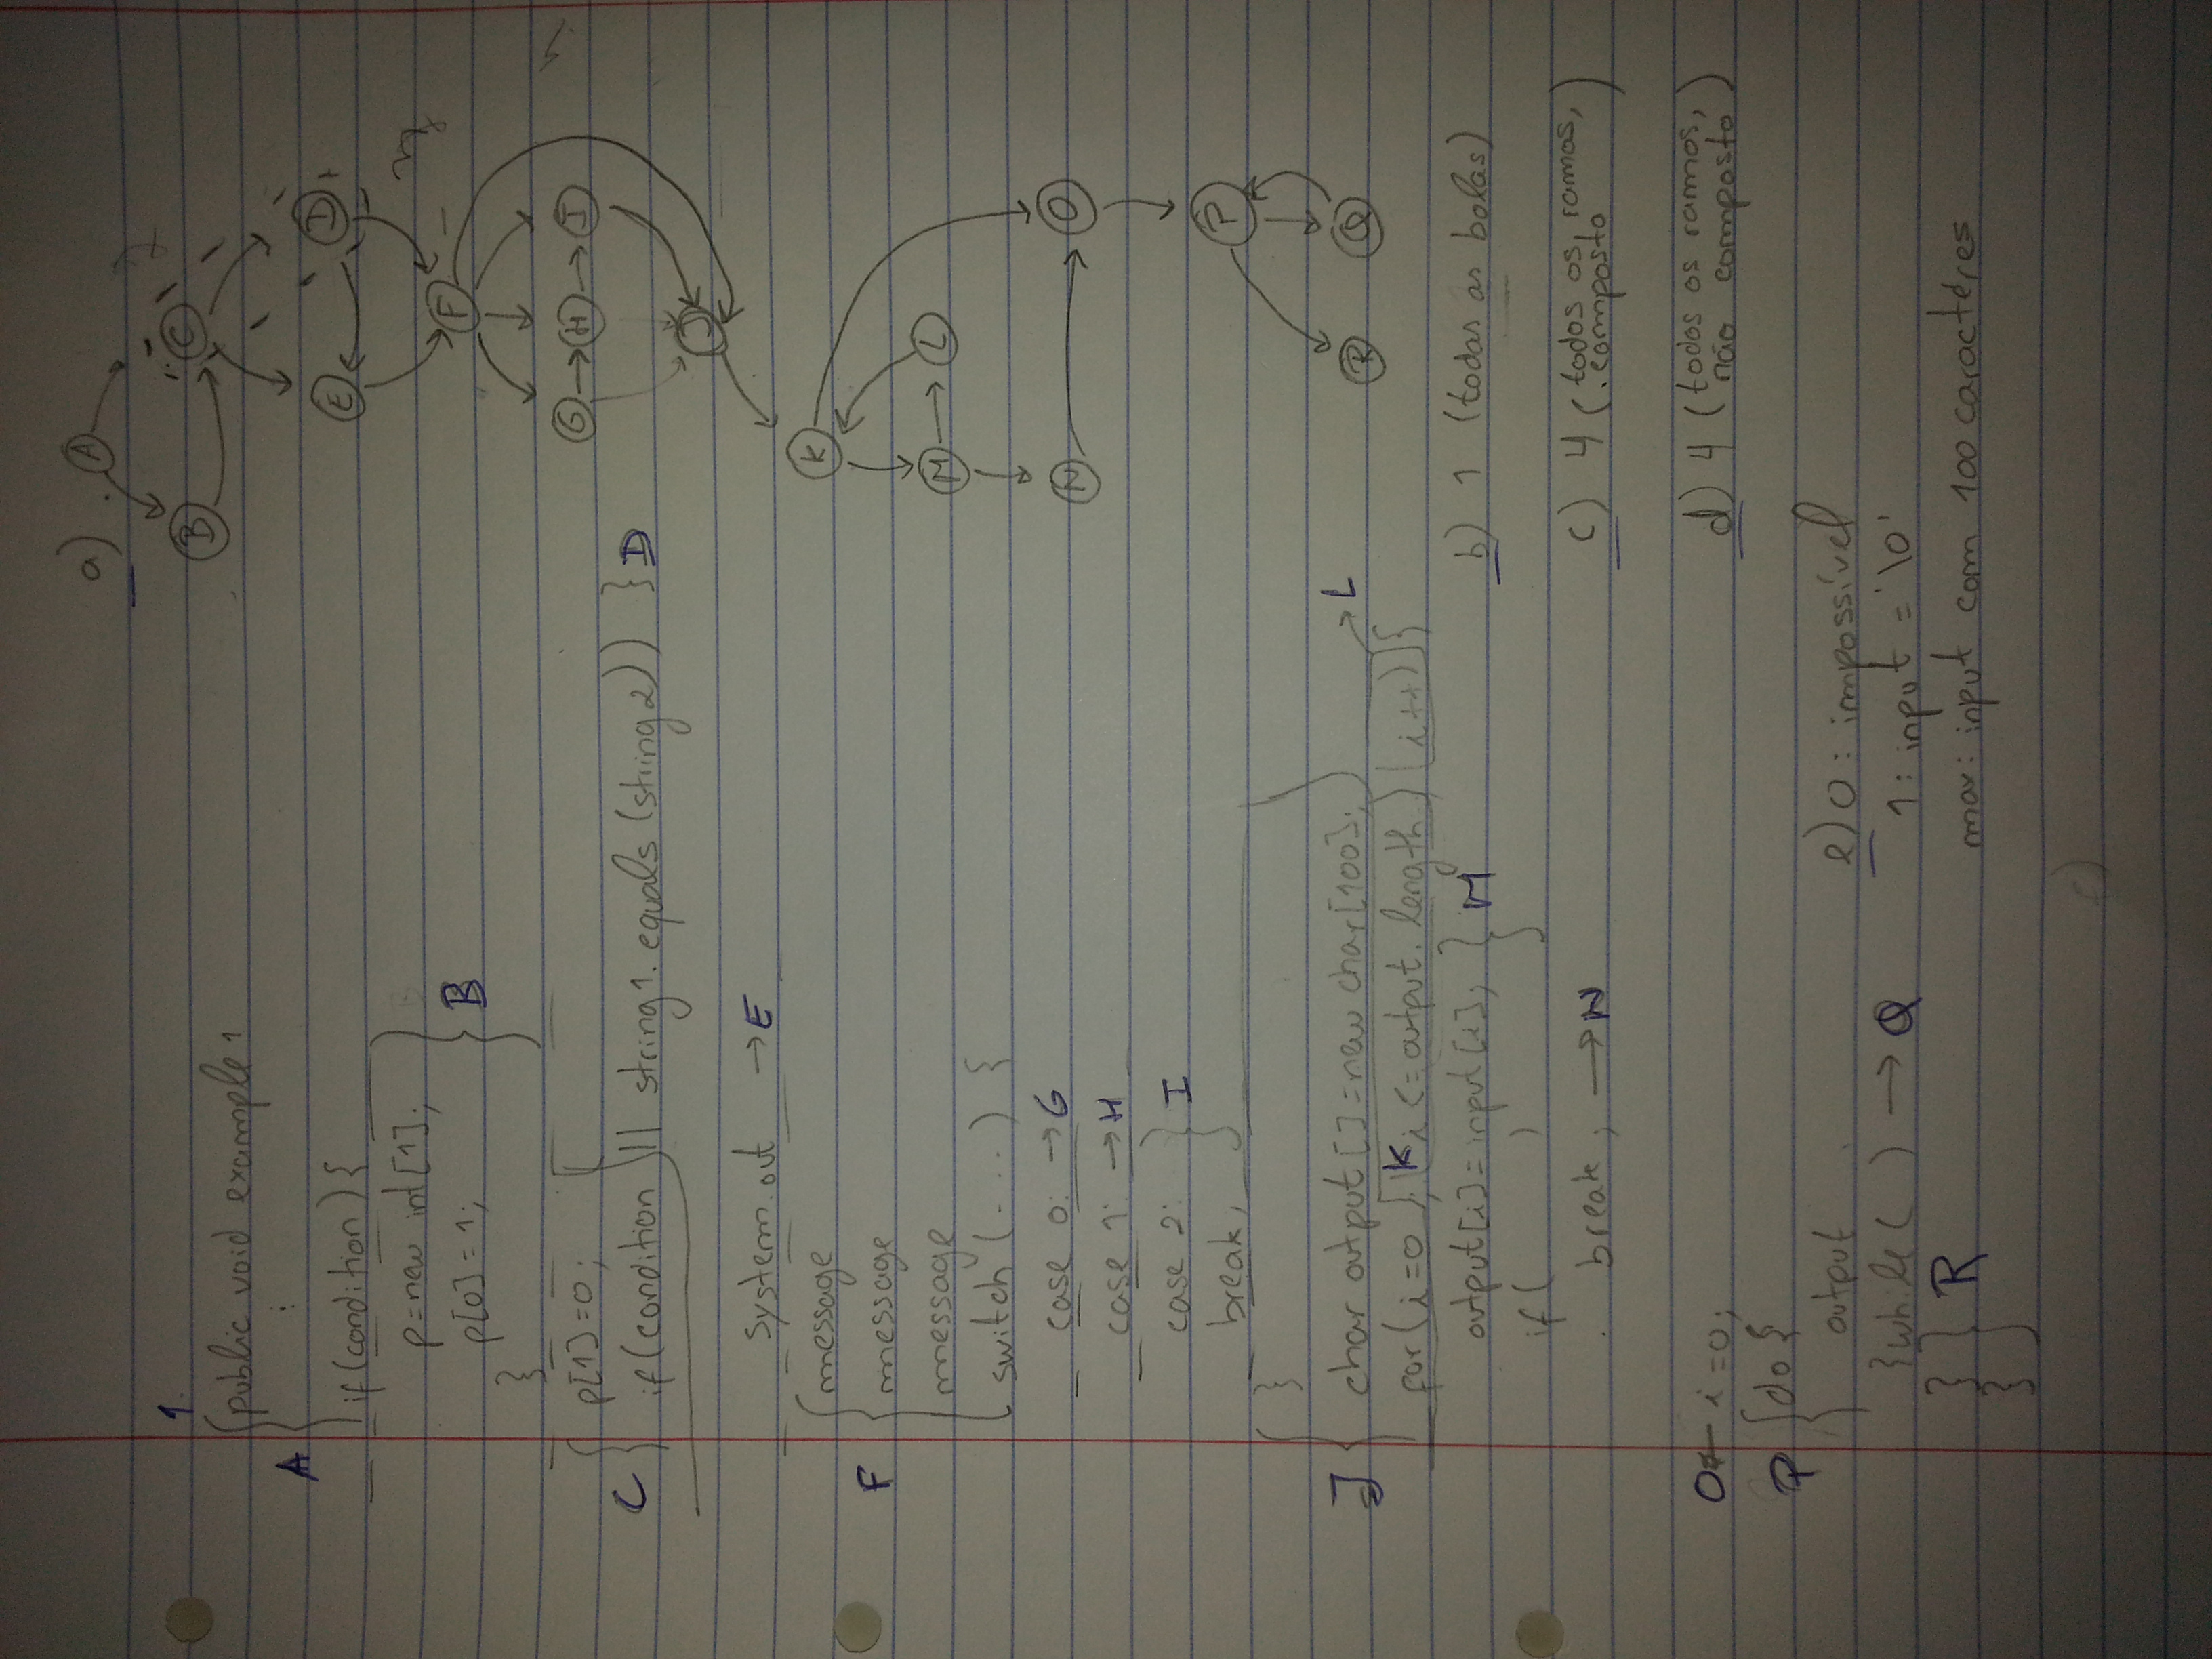 1.
A
public void example1
:
if(condition){
p=new int[1];
p[0]=1;
}
B
C
p[1]=0;
if(condition || string1.equals(string2))
D
system.out → E
F
message
message
message
switch(....) {
case 0: → G
case 1: → H
case 2:
break;
I
J
}
char output[]=new char[100];
for(i=0; K i<=output.length; i++){
→ L
output[i]=input[i];
if( )
M
break; → N
O ← i=0;
P
do {
output
}while( ) → Q
}
}
R
a)
A
B
C
E
D
F
G → H → I
J
K
M → L
N
O
P
R
Q
b) 1 (todas as bolas)
c) 4 (todos os ramos,
composto)
d) 4 (todos os ramos,
não composto)
e) 0: impossível
1: input = '\0'
max: input com 100 caractéres
f)